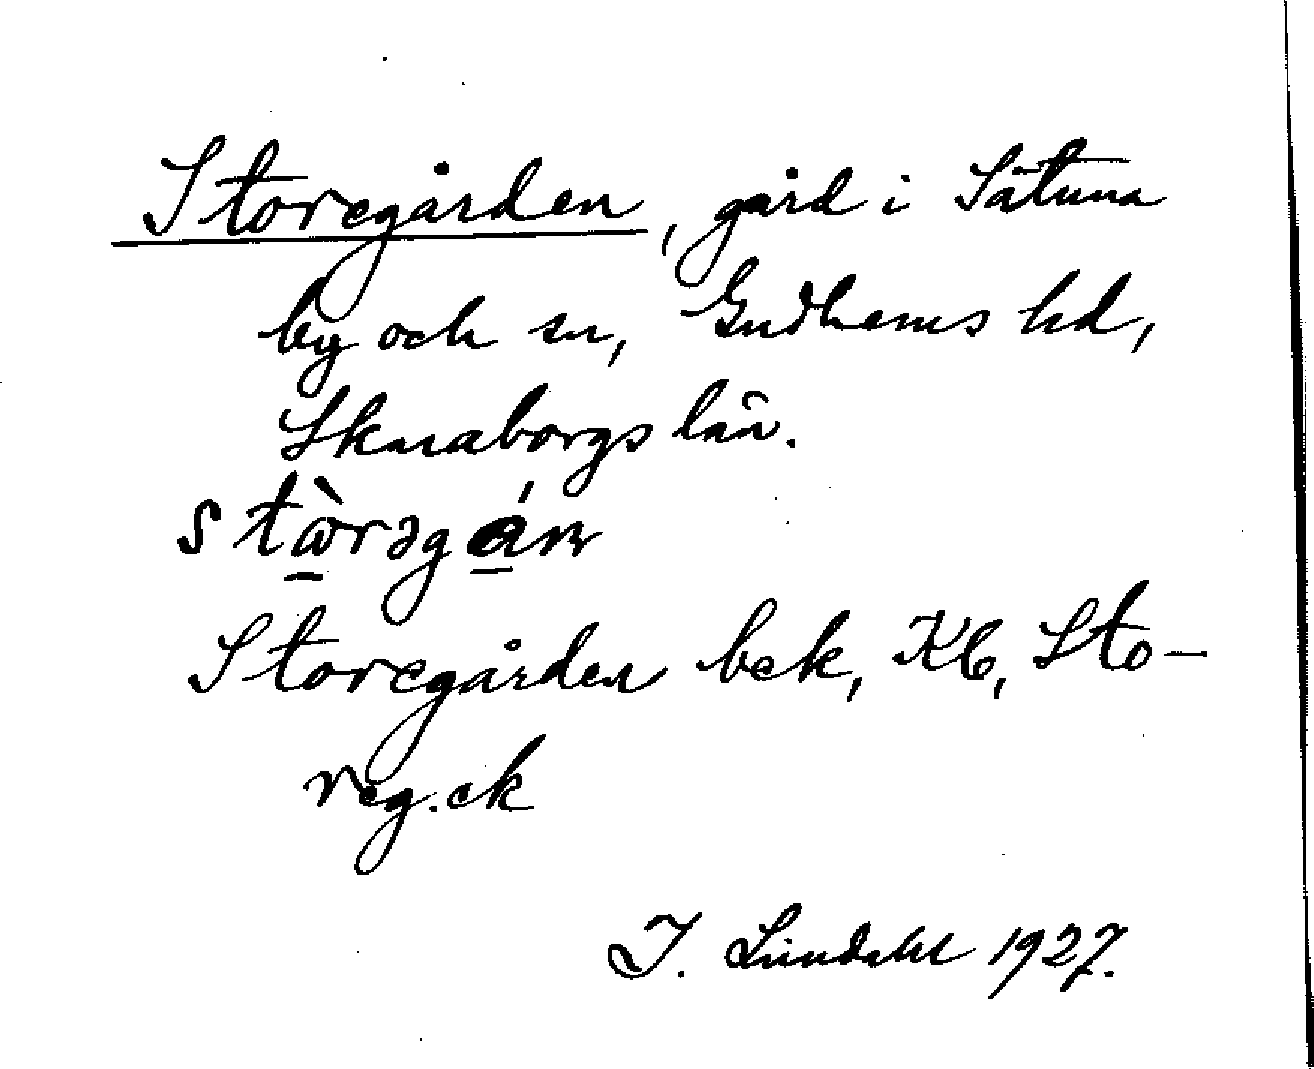 Storegården, gård i Sätuna
by och sn, Gudhems hd,
Skaraborgs län.
Storegården bek, Kb, Sto-
reg. ek
J. Lindahl 1927.